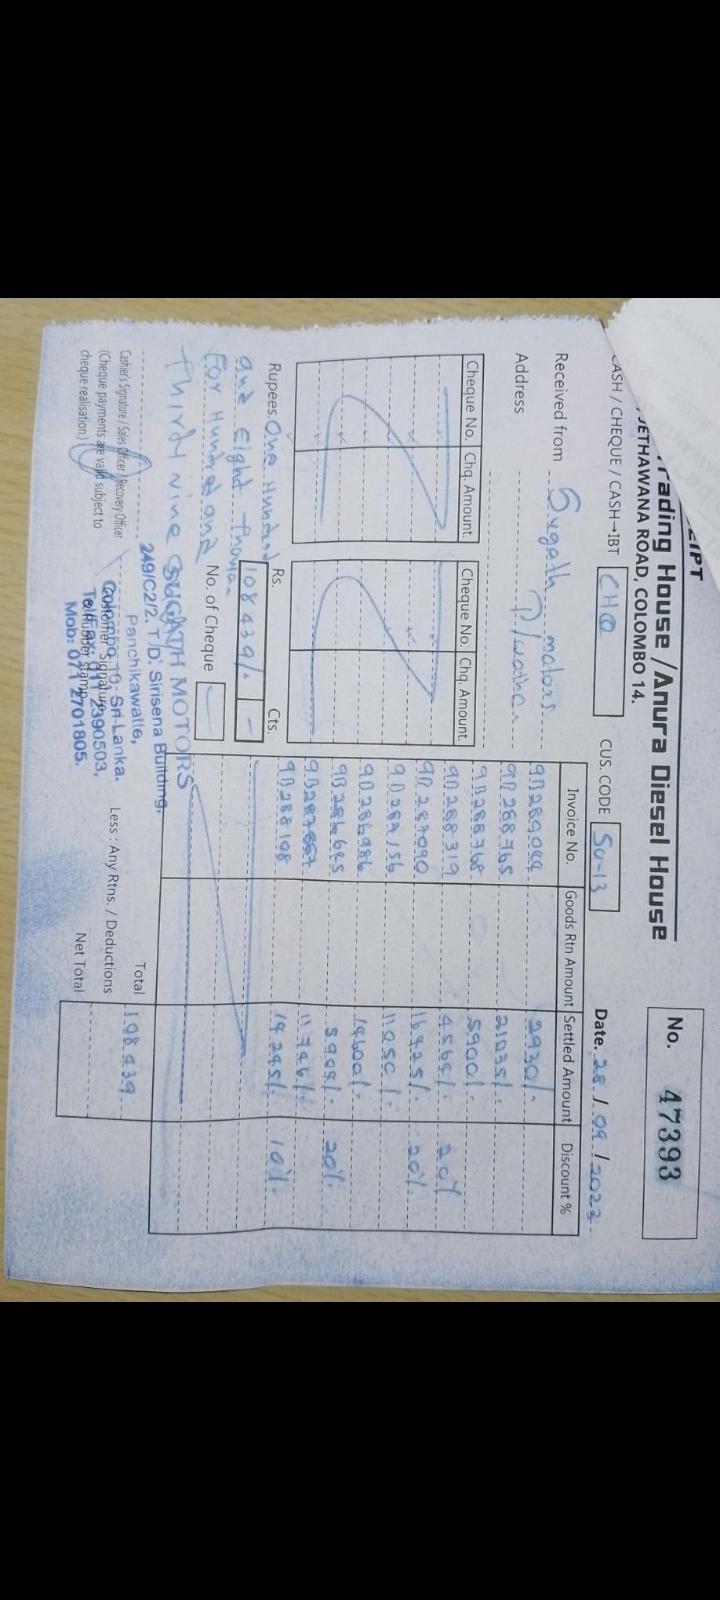 EIPT
rading House /Anura Diesel House
JETHAWANA ROAD, COLOMBO 14.
No. 47393
CASH / CHEQUE / CASH→IBT CHQ
CUS. CODE SU-13
Date. 28 / 09 / 2023
Received from Sugath motors
Address P/watha
Cheque No. Chq. Amount.
Cheque No. Chq. Amount.
Rupees. One Hundred
and Eight Thousa
For Hundred and
Thirdy Nine
Rs. Cts.
108 439/. -
No. of Cheque
Invoice No. Goods Rtn Amount Settled Amount Discount %
9D289084 2930/-
9D288765 21035/-
9D288768 5900/-
9D288319 4564/- 20%
9D287090 16925/- 20%
9D287156 11050/-
9D286986 14600/-
9D286645 5909/- 20%
9D287867 11746/-
9D288108 14245/- 10%
Total 108439
Less : Any Rtns. / Deductions
Net Total
SUGATH MOTORS
249/C2/2. T/D. Sirisena Building,
Panchikawatte,
Colombo 10, Sri Lanka.
Tel/Fax: 011 2390503,
Mob: 071 2701805.
Customer Signature
& Rubber Stamp
Cashier's Signature / Sales Officer / Recovery Officer
(Cheque payments are valid subject to
cheque realisation.)